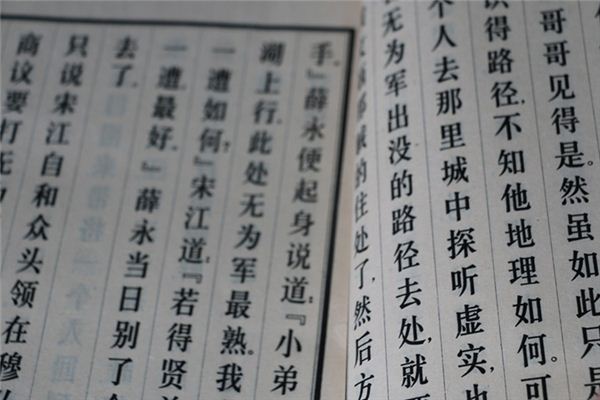 哥哥见得是。然虽如此只是
识得路径,不知他地理如何。可
个人去那里城中探听虚实,也
无为军出没的路径去处,就要
的住处了,然后方
手。』薛永便起身说道:『小弟
湖上行,此处无为军最熟。我
一遭如何?』宋江道:『若得贤
一遭最好。』薛永当日别了
去了。
只说宋江自和众头领在穆
商议要打无